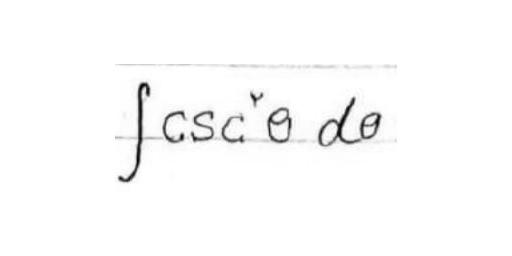 ∫ csc^γ θ dθ